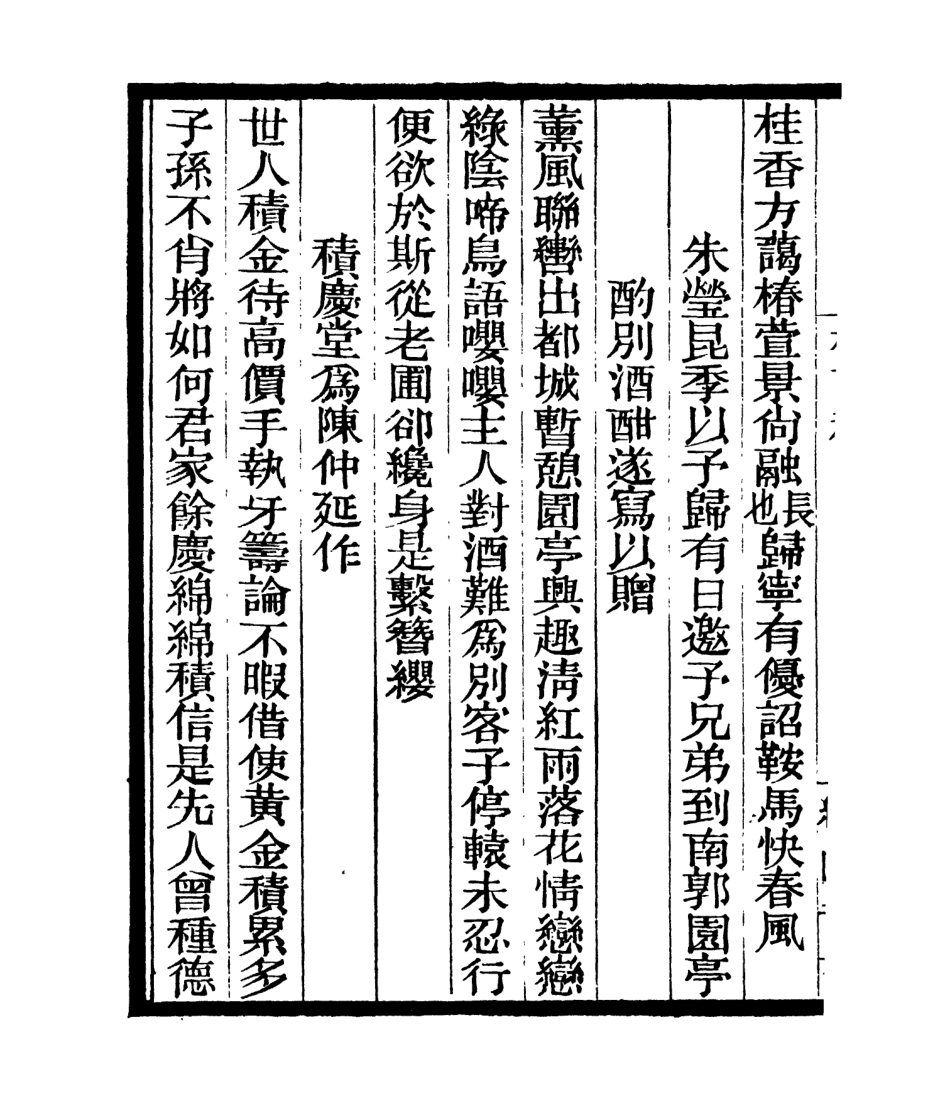 桂香方藹椿萱景尙融長也歸寧有優詔鞍馬快春風
朱瑩昆季以予歸有日邀予兄弟到南郭園亭
酌別酒酣遂寫以贈
薰風聯轡出都城暫憩園亭興趣淸紅雨落花情戀戀
綠陰啼鳥語嚶嚶主人對酒難爲別客子停轅未忍行
便欲於斯從老圃卻纔身是繫簪纓
積慶堂爲陳仲延作
世人積金待高價手執牙籌論不暇借使黃金積累多
子孫不肖將如何君家餘慶綿綿積信是先人曾種德